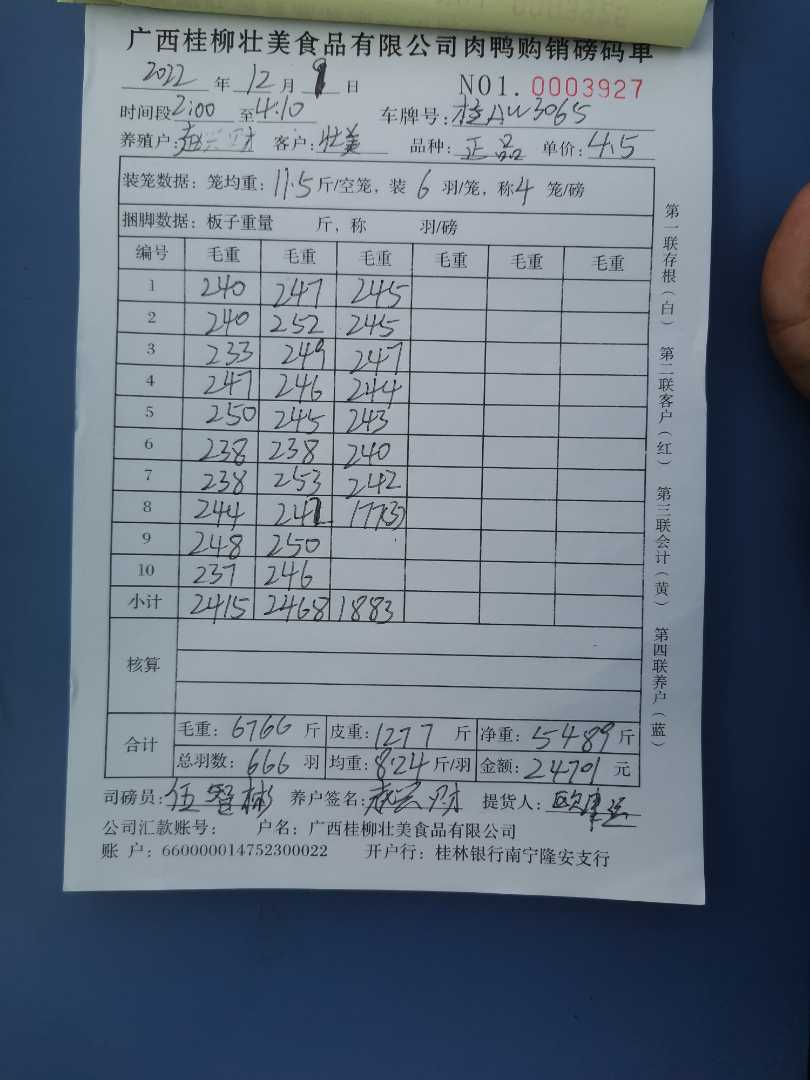 广西桂柳壮美食品有限公司肉鸭购销磅码单
2022 年 12 月 9 日 NO1. 0003927
时间段 2:00 至 4:10 车牌号: 桂AW3065
养殖户: 客户: 壮美 品种: 正品 单价: 4.5
装笼数据: 笼均重: 11.5 斤/空笼, 装 6 羽/笼, 称 4 笼/磅
捆脚数据: 板子重量 斤, 称 羽/磅
编号 毛重 毛重 毛重 毛重 毛重 毛重
1 240 247 245
2 240 252 245
3 233 249 247
4 247 246 244
5 250 245 243
6 238 238 240
7 238 253 242
8 244 242 177(3)
9 248 250
10 237 246
小计 2415 2468 1883
核算
合计 毛重: 6766 斤 皮重: 1277 斤 净重: 5489 斤
总羽数: 666 羽 均重: 8.24 斤/羽 金额: 24701 元
司磅员: 伍智彬 养户签名: 提货人:
公司汇款账号: 户名: 广西桂柳壮美食品有限公司
账 户: 660000014752300022 开户行: 桂林银行南宁隆安支行
第一联存根(白) 第二联客户(红) 第三联会计(黄) 第四联养户(蓝)